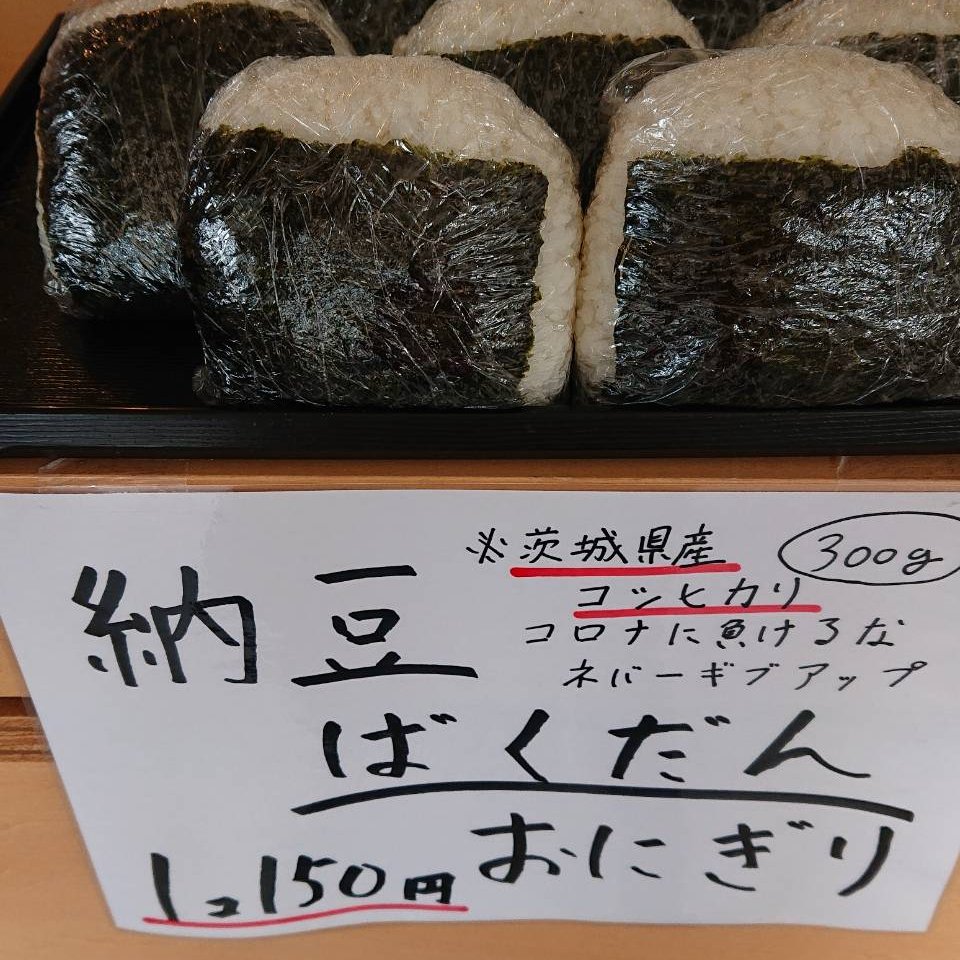 ※茨城県産 300g
コシヒカリ
コロナに負けるな
ネバーギブアップ
納豆
ばくだん
おにぎり
1コ150円